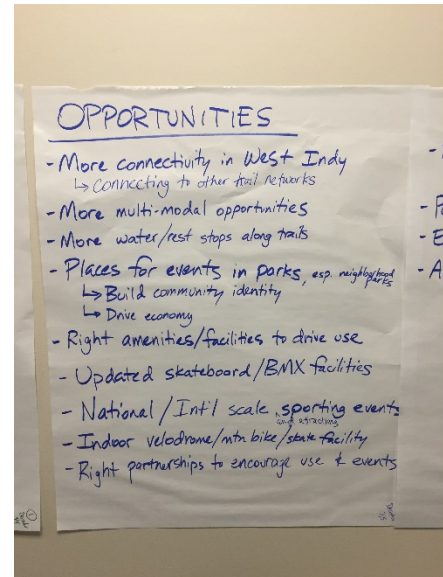 OPPORTUNITIES
- More connectivity in West Indy
↳ Connecting to other trail networks
- More multi-modal opportunities
- More water/rest stops along trails
- Places for events in parks, esp. neighborhood parks
↳ Build community identity
↳ Drive economy
- Right amenities/facilities to drive use
- Updated skateboard/BMX facilities
- National/Int'l scale sporting events
and attractions
- Indoor velodrome/mtn bike/skate facility
- Right partnerships to encourage use & events